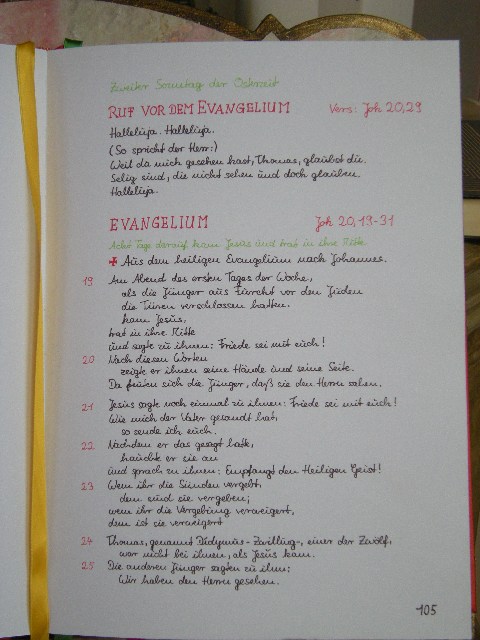 Zweiter Sonntag der Osterzeit
RUF VOR DEM EVANGELIUM Vers: Joh 20,29
Halleluja. Halleluja.
(So spricht der Herr:)
Weil du mich gesehen hast, Thomas, glaubst du.
Selig sind, die nicht sehen und doch glauben.
Halleluja.
EVANGELIUM Joh 20,19-31
Acht Tage darauf kam Jesus und trat in ihre Mitte
+ Aus dem heiligen Evangelium nach Johannes.
19 Am Abend des ersten Tages der Woche,
als die Jünger aus Furcht vor den Juden
die Türen verschlossen hatten.
kam Jesus,
trat in ihre Mitte
und sagte zu ihnen: Friede sei mit euch!
20 Nach diesen Worten
zeigte er ihnen seine Hände und seine Seite.
Da freuten sich die Jünger, daß sie den Herrn sahen.
21 Jesus sagte noch einmal zu ihnen: Friede sei mit euch!
Wie mich der Vater gesandt hat,
so sende ich euch.
22 Nachdem er das gesagt hatte,
hauchte er sie an
und sprach zu ihnen: Empfangt den Heiligen Geist!
23 Wem ihr die Sünden vergebt,
dem sind sie vergeben;
wem ihr die Vergebung verweigert,
dem ist sie verweigert
24 Thomas, genannt Didymus - Zwilling -, einer der Zwölf,
war nicht bei ihnen, als Jesus kam.
25 Die anderen Jünger sagten zu ihm:
Wir haben den Herrn gesehen.
105